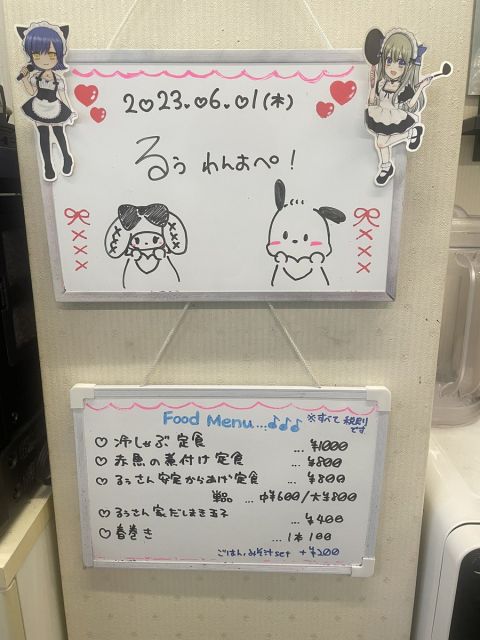 2023.06.01(木)
るぅ わんおぺ!
Food Menu...♪♪♪
※すべて税別です
♡ 冷しゃぶ定食 ... ¥1000
♡ 赤魚の煮付け定食 ... ¥800
♡ るぅさん安定からあげ定食 ... ¥800
単品 ... 中¥600/大¥800
♡ るぅさん家だしまき玉子 ... ¥400
♡ 春巻き ... 1本100
ごはん,みそ汁set +¥200